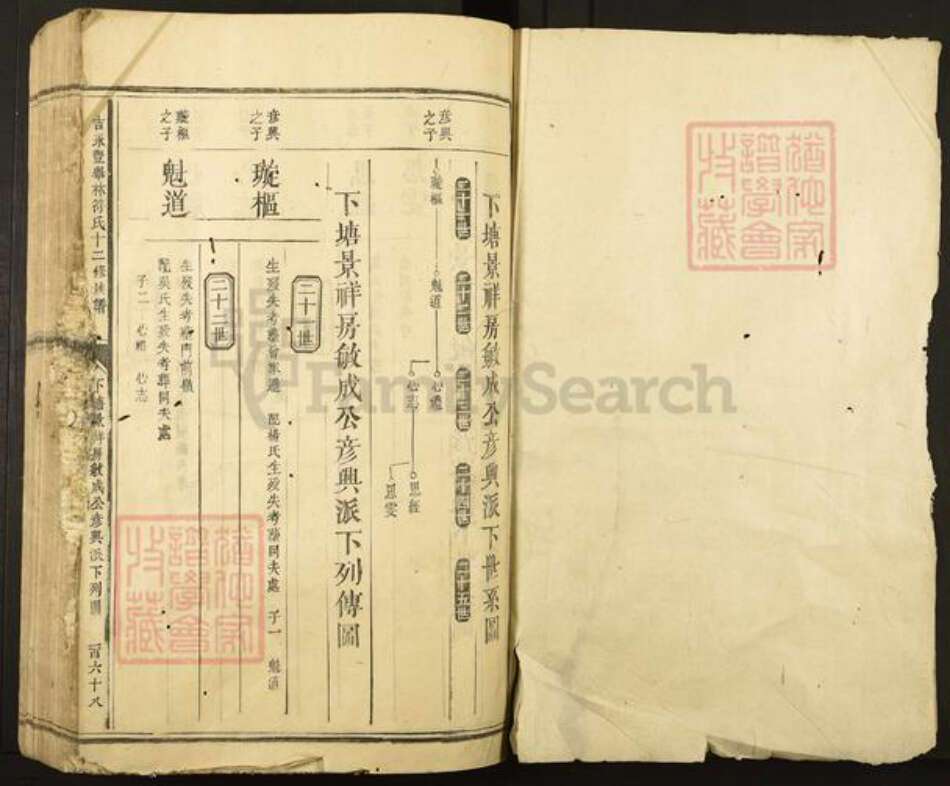 下塘景祥房敏成公彦興派下世系圖
二十一世
二十二世
二十三世
二十四世
二十五世
彦興之子
璇樞
魁道
心志
思經
思雯
下塘景祥房敏成公彦興派下列傳圖
二十一世
彦興之子
璇樞
配楊氏生歿失考葬同夫處 子一 魁道
二十二世
璇樞之子
魁道
生歿失考葬門前
配吳氏生歿失考葬同夫處
子二 心志
符氏十二修族譜
敏成公彦興派下列圖
百六十八
猶他家譜學會收藏
猶他家譜學會收藏
FamilySearch